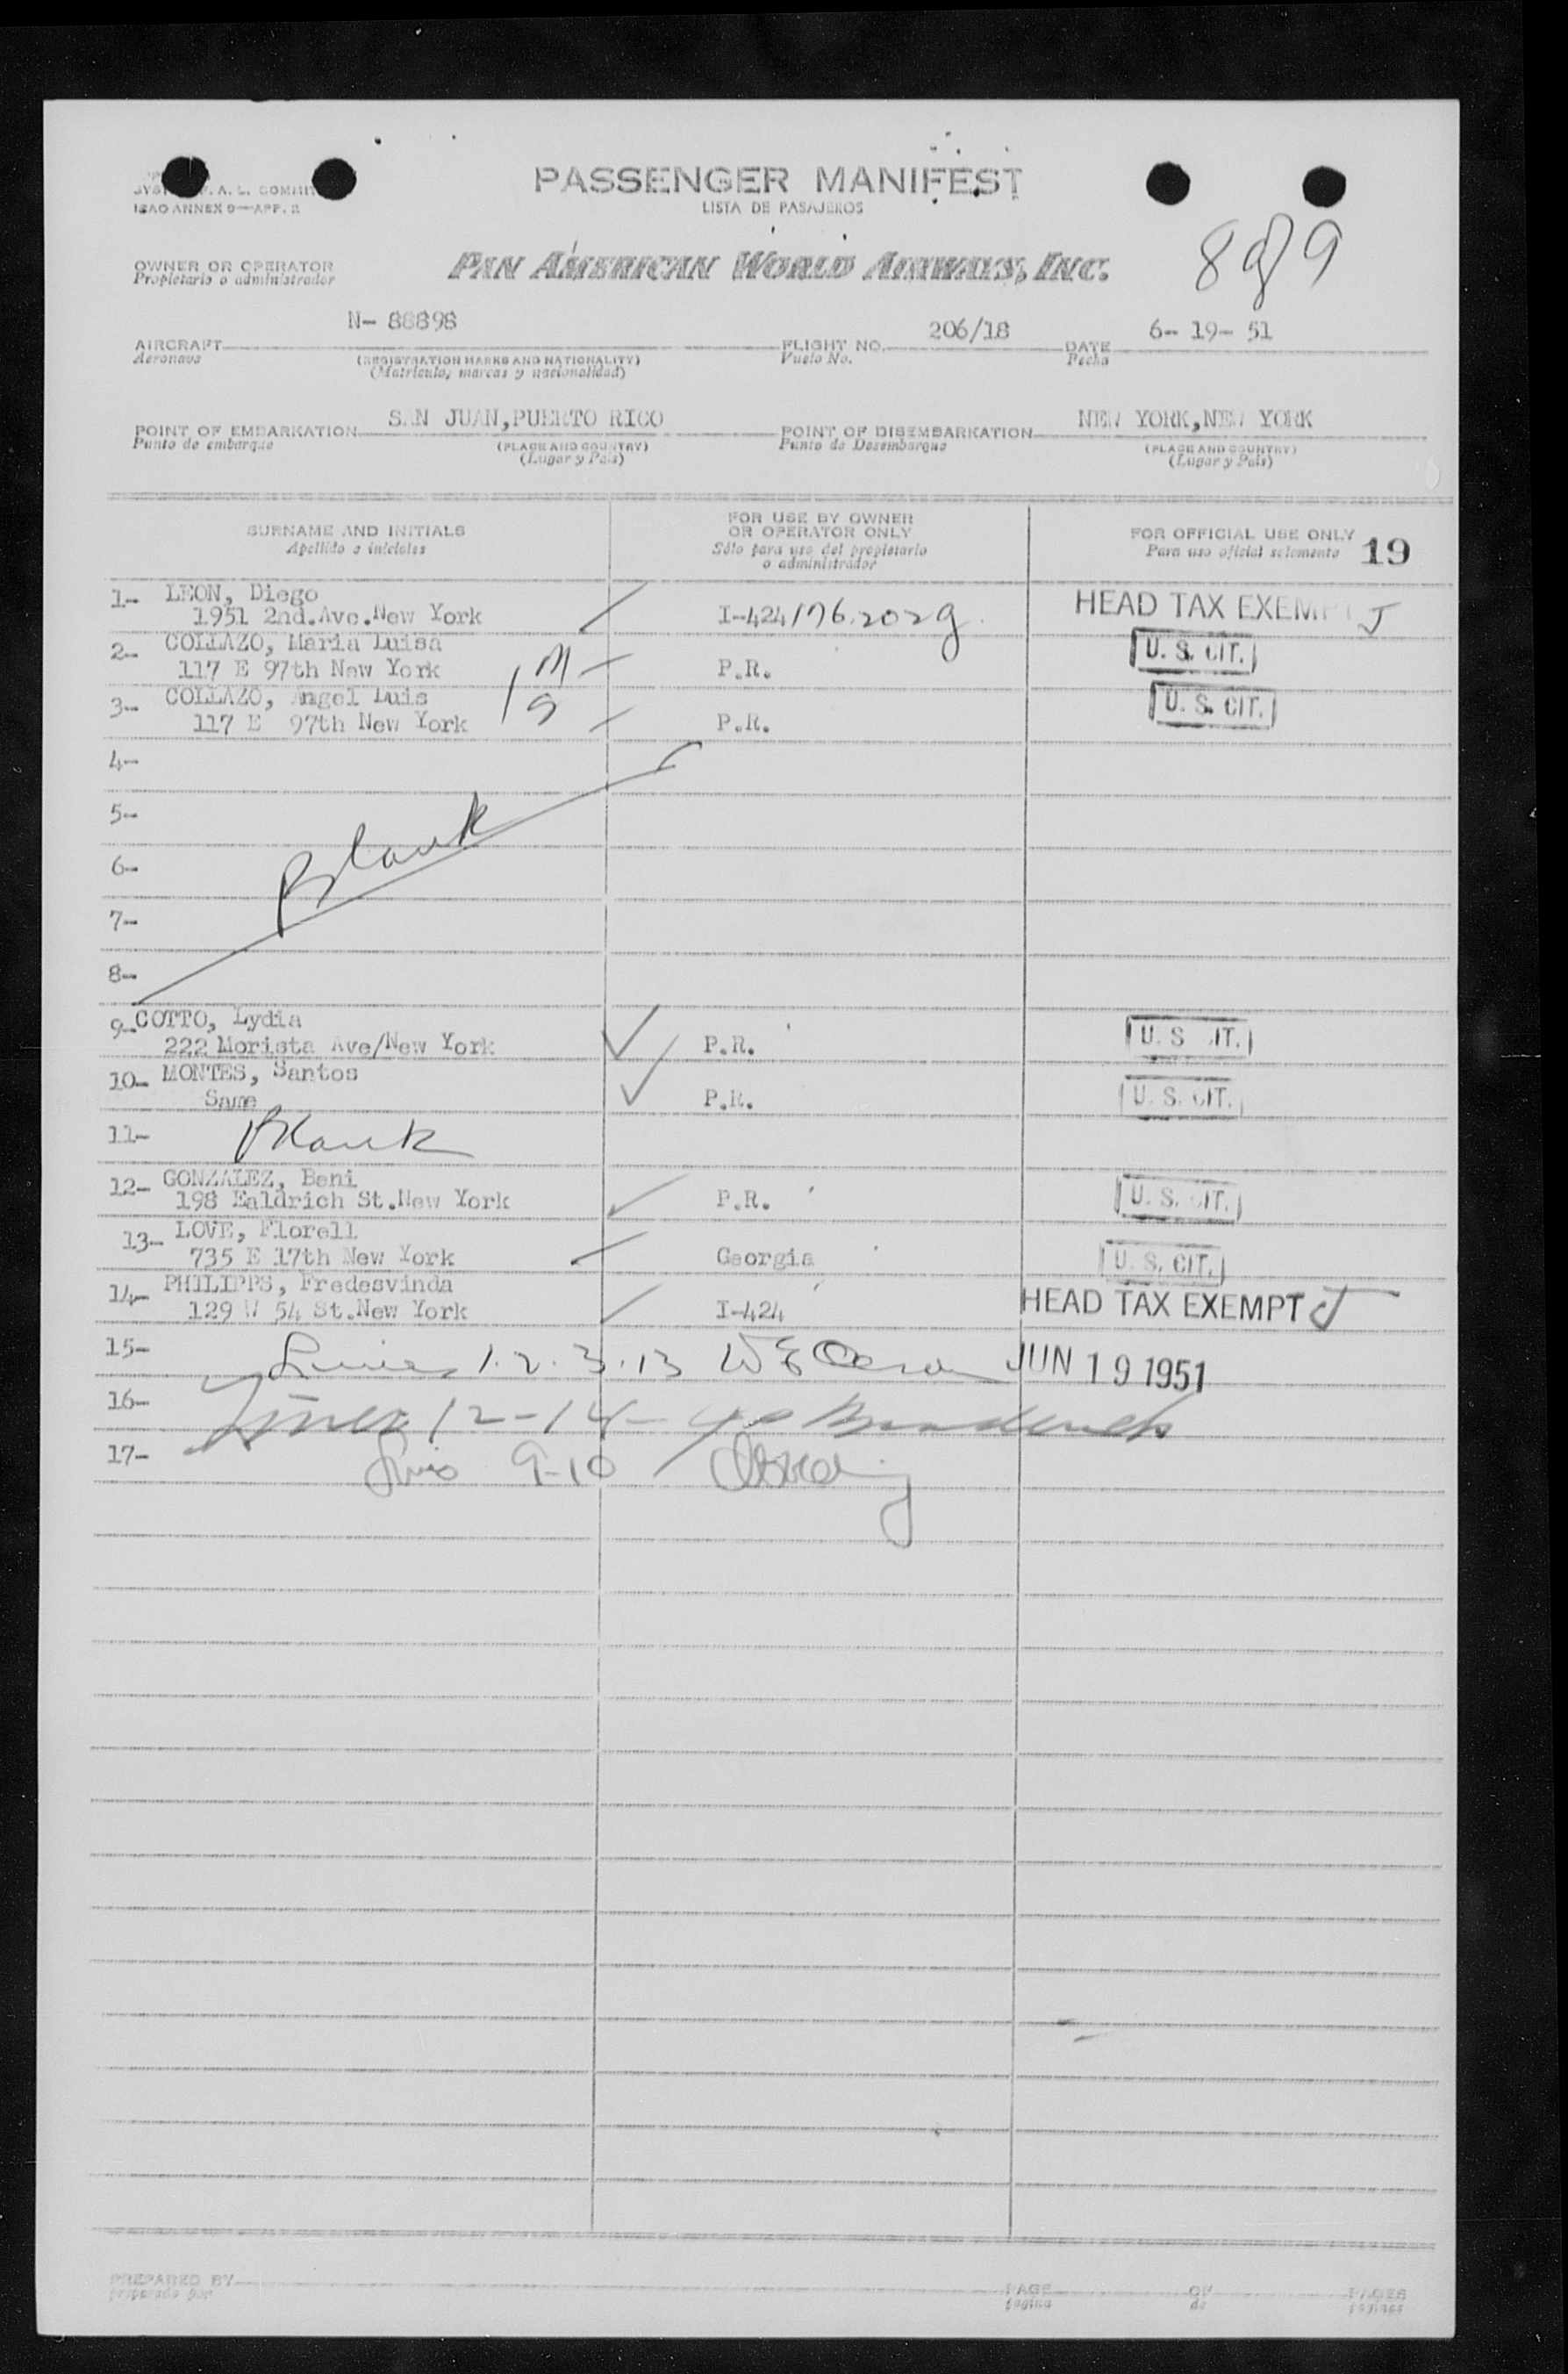 V. A. L. COMMIT
ICAO ANNEX 9—APP. 2
PASSENGER MANIFEST
LISTA DE PASAJEROS
OWNER OR OPERATOR
Propietario o administrador
PAN AMERICAN WORLD AIRWAYS, INC.
N- 88898
206/18
6- 19- 51
AIRCRAFT
Aeronave
(REGISTRATION MARKS AND NATIONALITY)
(Matrícula, marcas y nacionalidad)
FLIGHT NO.
Vuelo No.
DATE
Fecha
SAN JUAN,PUERTO RICO
NEW YORK,NEW YORK
POINT OF EMBARKATION
Punto de embarque
(PLACE AND COUNTRY)
(Lugar y País)
POINT OF DISEMBARKATION
Punto de Desembarque
(PLACE AND COUNTRY)
(Lugar y País)
SURNAME AND INITIALS
Apellido e iniciales
FOR USE BY OWNER
OR OPERATOR ONLY
Sólo para uso del propietario
o administrador
FOR OFFICIAL USE ONLY
Para uso oficial solamente
19
1- LEON, Diego
1951 2nd.Ave.New York I-424/176.2029 HEAD TAX EXEMP J
2- COLLAZO, Maria Luisa
117 E 97th New York 1 M P.R. U. S. CIT.
3- COLLAZO, Angel Luis
117 E 97th New York 1 S P.R. U. S. CIT.
4-
5-
Blank
6-
7-
8-
9- COTTO, Lydia
222 Morista Ave/New York P.R. U. S IT.
10- MONTES, Santos
Same P.R. U. S. CIT.
11- Blank
12- GONZALEZ, Beni
198 Ealdrich St.New York P.R. U. S. IT.
13- LOVE, Florell
735 E 17th New York Georgia U. S. CIT.
14- PHILIPPS, Fredesvinda
129 W 54 St.New York I-424 HEAD TAX EXEMPT J
15- Lines 1.2.3.13 JUN 19 1951
16- Lines 12-14-
17- 9-10
PREPARED BY
preparado por
PAGE
página
OF
de
PAGES
páginas